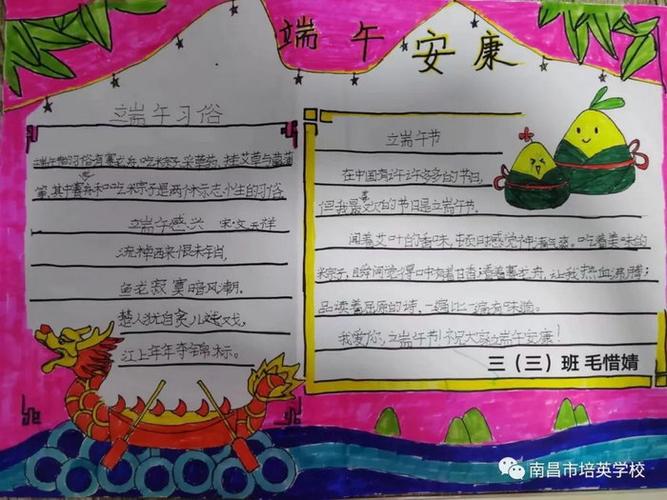 端午安康
端午习俗
端午节的习俗有赛龙舟、吃粽子、采草药、挂艾草与菖蒲
等,其中赛龙舟和吃粽子是两个标志小生的习俗。
端午感兴 宋·文天祥
流棹西来恨未销,
鱼龙寂寞暗风潮。
楚人犹自贪儿戏,
江上年年夺锦标。
端午节
在中国有许许多多的节日,
但我最喜欢的节日是端午节。
闻着艾叶的香味,顿时感觉神清气爽。吃着美味的
粽子,瞬间觉得口中有着甘香;看着赛龙舟,让我热血沸腾;
品读着屈原的诗,一篇比一篇有味道。
我爱你,端午节!祝大家端午安康!
三(三)班 毛惜婧
南昌市培英学校